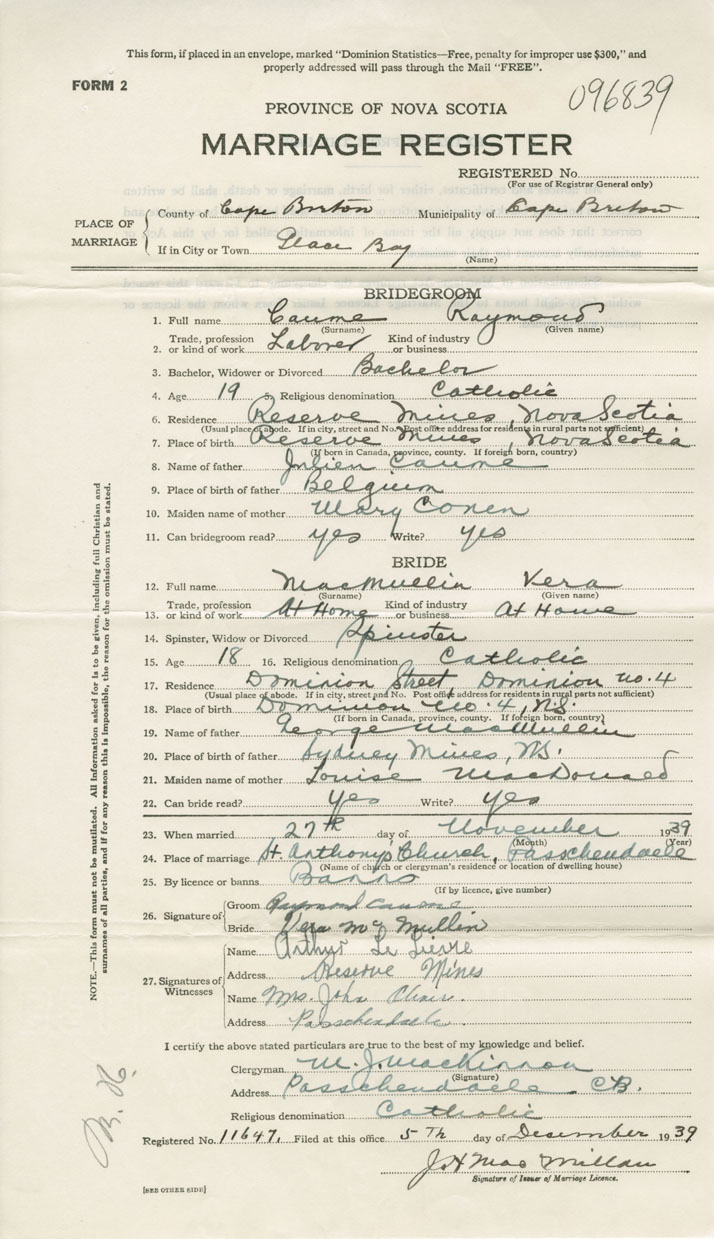 This form, if placed in an envelope, marked "Dominion Statistics—Free, penalty for improper use $300," and
properly addressed will pass through the Mail "FREE".
FORM 2
096839
PROVINCE OF NOVA SCOTIA
MARRIAGE REGISTER
REGISTERED No.
(For use of Registrar General only)
PLACE OF MARRIAGE
County of Cape Breton Municipality of Cape Breton
If in City or Town Glace Bay
(Name)
BRIDEGROOM
1. Full name Caume Raymond
(Surname) (Given name)
2. Trade, profession or kind of work Laborer Kind of industry or business
3. Bachelor, Widower or Divorced Bachelor
4. Age 19 5. Religious denomination Catholic
6. Residence Reserve Mines, Nova Scotia
(Usual place of abode. If in city, street and No. Post office address for residents in rural parts not sufficient)
7. Place of birth Reserve Mines, Nova Scotia
(If born in Canada, province, county. If foreign born, country)
8. Name of father Julien Caume
9. Place of birth of father Belgium
10. Maiden name of mother Mary Conen
11. Can bridegroom read? yes Write? yes
BRIDE
12. Full name MacMullin Vera
(Surname) (Given name)
13. Trade, profession or kind of work At Home Kind of industry or business At Home
14. Spinster, Widow or Divorced Spinster
15. Age 18 16. Religious denomination Catholic
17. Residence Dominion Street Dominion No. 4
(Usual place of abode. If in city, street and No. Post office address for residents in rural parts not sufficient)
18. Place of birth Dominion No. 4, N.S.
(If born in Canada, province, county. If foreign born, country)
19. Name of father George MacMullin
20. Place of birth of father Sydney Mines, N.S.
21. Maiden name of mother Louise MacDonald
22. Can bride read? Yes Write? yes
23. When married 27th day of November 1939
(Month) (Year)
24. Place of marriage St. Anthony's Church, Passchendaele
(Name of church or clergyman's residence or location of dwelling house)
25. By licence or banns Banns
(If by licence, give number)
26. Signature of
Groom Raymond Caume
Bride Vera McMullin
27. Signatures of Witnesses
Name Arthur Le Lievre
Address Reserve Mines
Name Mrs. John
Address Passchendaele
I certify the above stated particulars are true to the best of my knowledge and belief.
Clergyman M. J. MacKinnon
(Signature)
Address Passchendaele C.B.
Religious denomination Catholic
Registered No. 11647. Filed at this office 5Th day of Desember 1939
J H MacMillan
Signature of Issuer of Marriage Licence.
[SEE OTHER SIDE]
NOTE.—This form must not be mutilated. All Information asked for is to be given, including full Christian and
surnames of all parties, and if for any reason this is impossible, the reason for the omission must be stated.